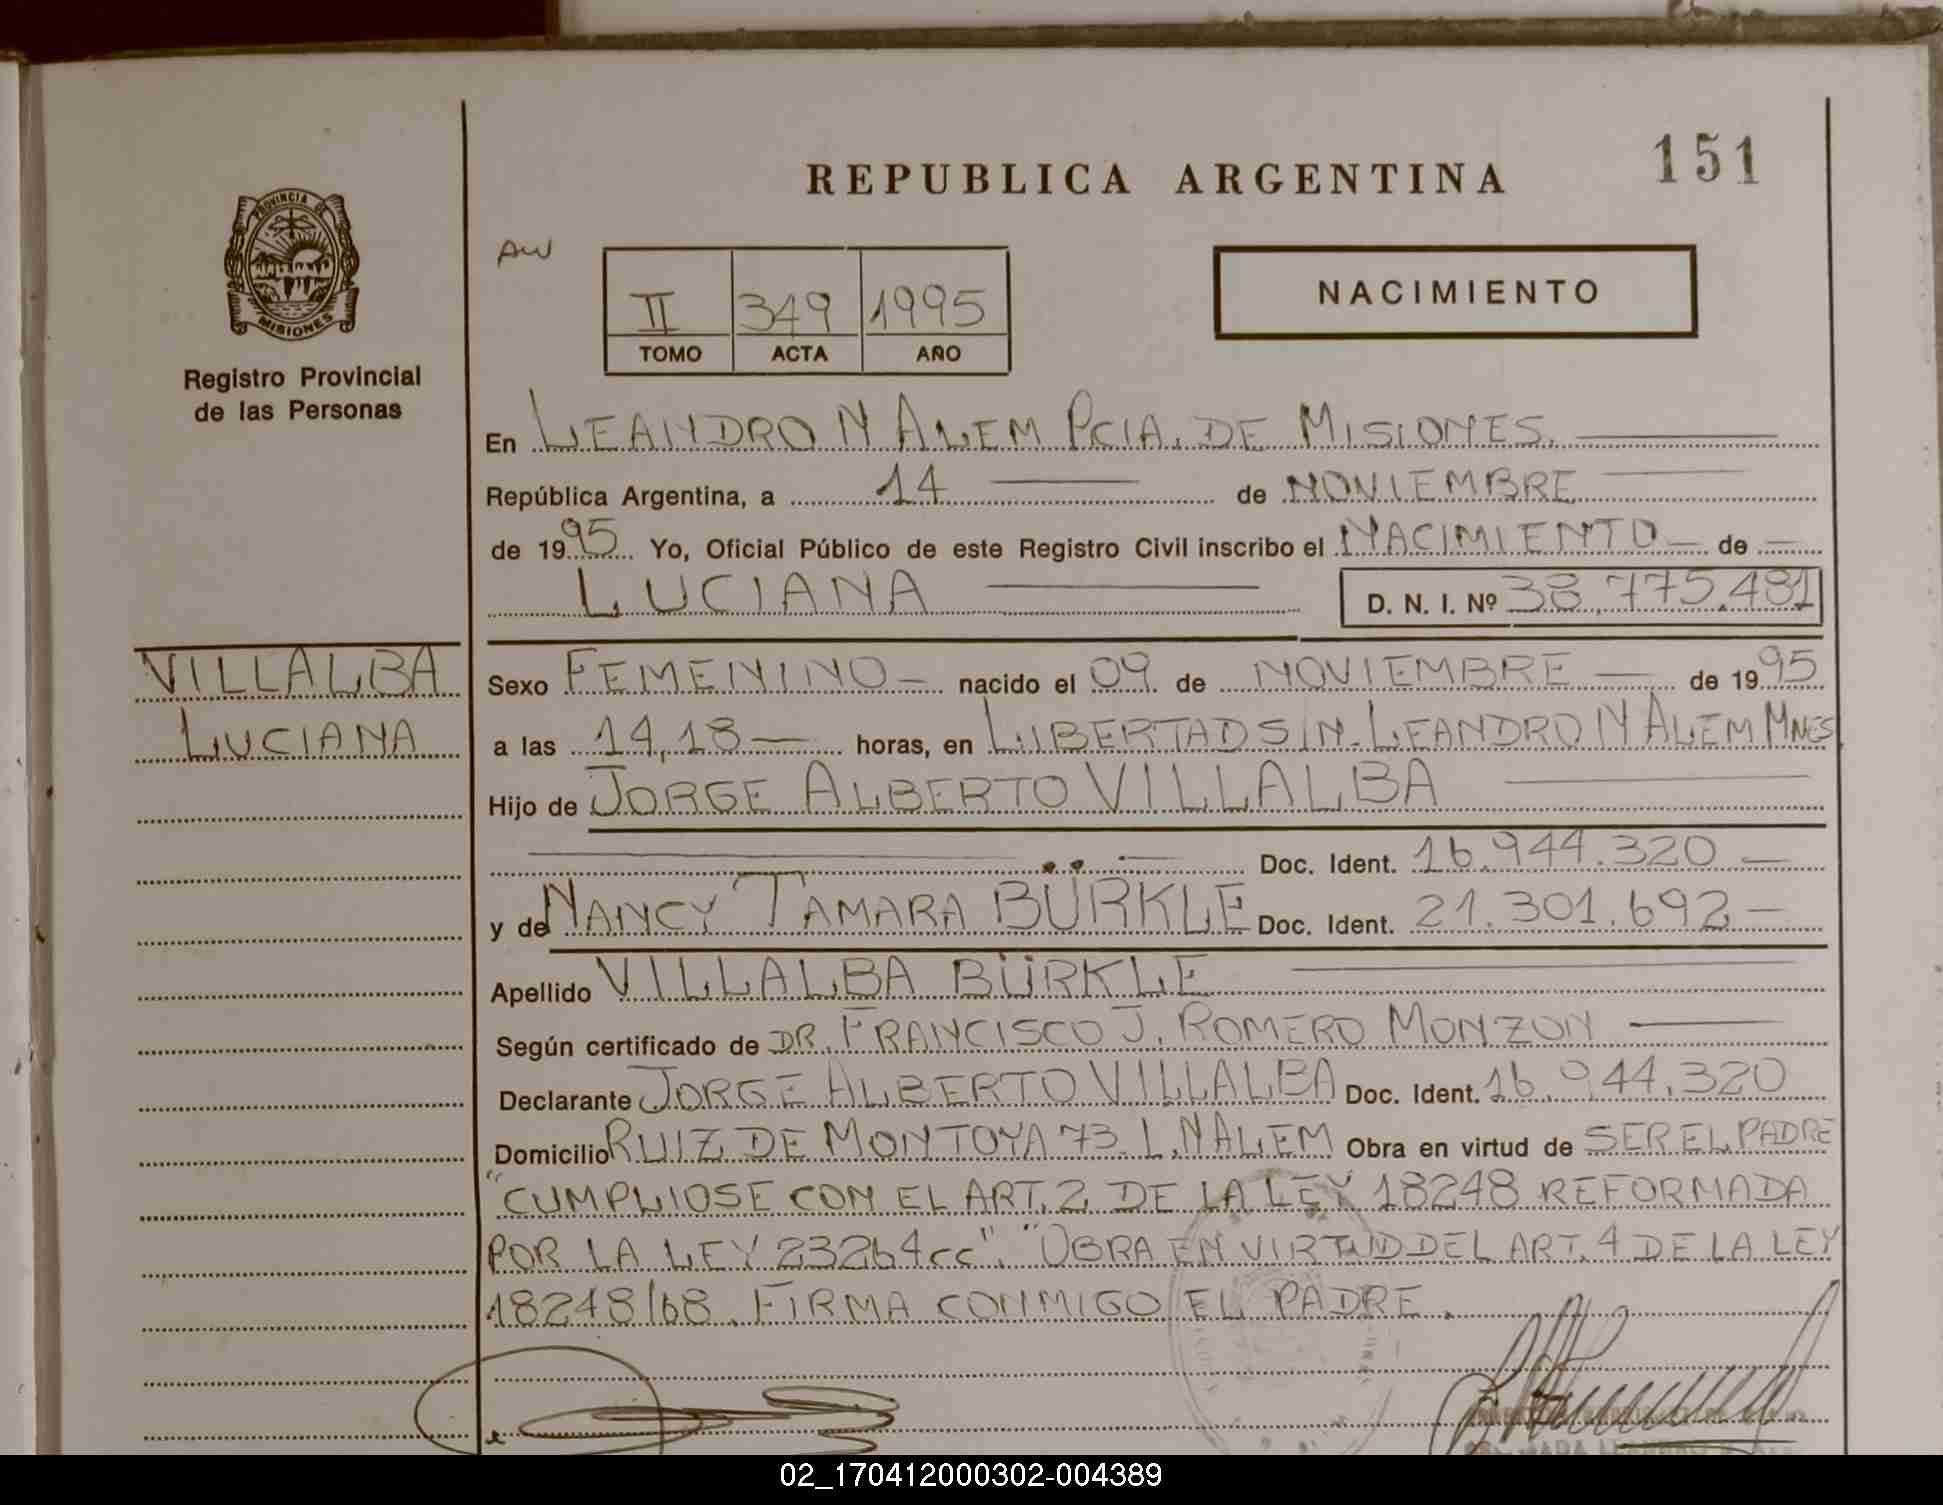 REPUBLICA ARGENTINA
151
PROVINCIA DE
MISIONES
Registro Provincial
de las Personas
AW
II 349 1995
TOMO ACTA AÑO
NACIMIENTO
En LEANDRO N ALEM PCIA. DE MISIONES.
República Argentina, a 14 de NOVIEMBRE
de 1995 Yo, Oficial Público de este Registro Civil inscribo el NACIMIENTO de
LUCIANA D. N. I. Nº 38.775.481
VILLALBA
LUCIANA
Sexo FEMENINO nacido el 09 de NOVIEMBRE de 1995
a las 14,18 horas, en LIBERTAD S/N. LEANDRO N ALEM MNES
Hijo de JORGE ALBERTO VILLALBA
Doc. Ident. 16.944.320
y de NANCY TAMARA BÜRKLE Doc. Ident. 21.301.692
Apellido VILLALBA BÜRKLE
Según certificado de DR. FRANCISCO J. ROMERO MONZON
Declarante JORGE ALBERTO VILLALBA Doc. Ident. 16.944.320
Domicilio RUIZ DE MONTOYA 73. L.N ALEM Obra en virtud de SER EL PADRE
"CUMPLIOSE CON EL ART. 2 DE LA LEY 18248 REFORMADA
POR LA LEY 23264cc". "OBRA EN VIRTUD DEL ART. 4 DE LA LEY
18248/68. FIRMA CONMIGO EL PADRE.
02_170412000302-004389